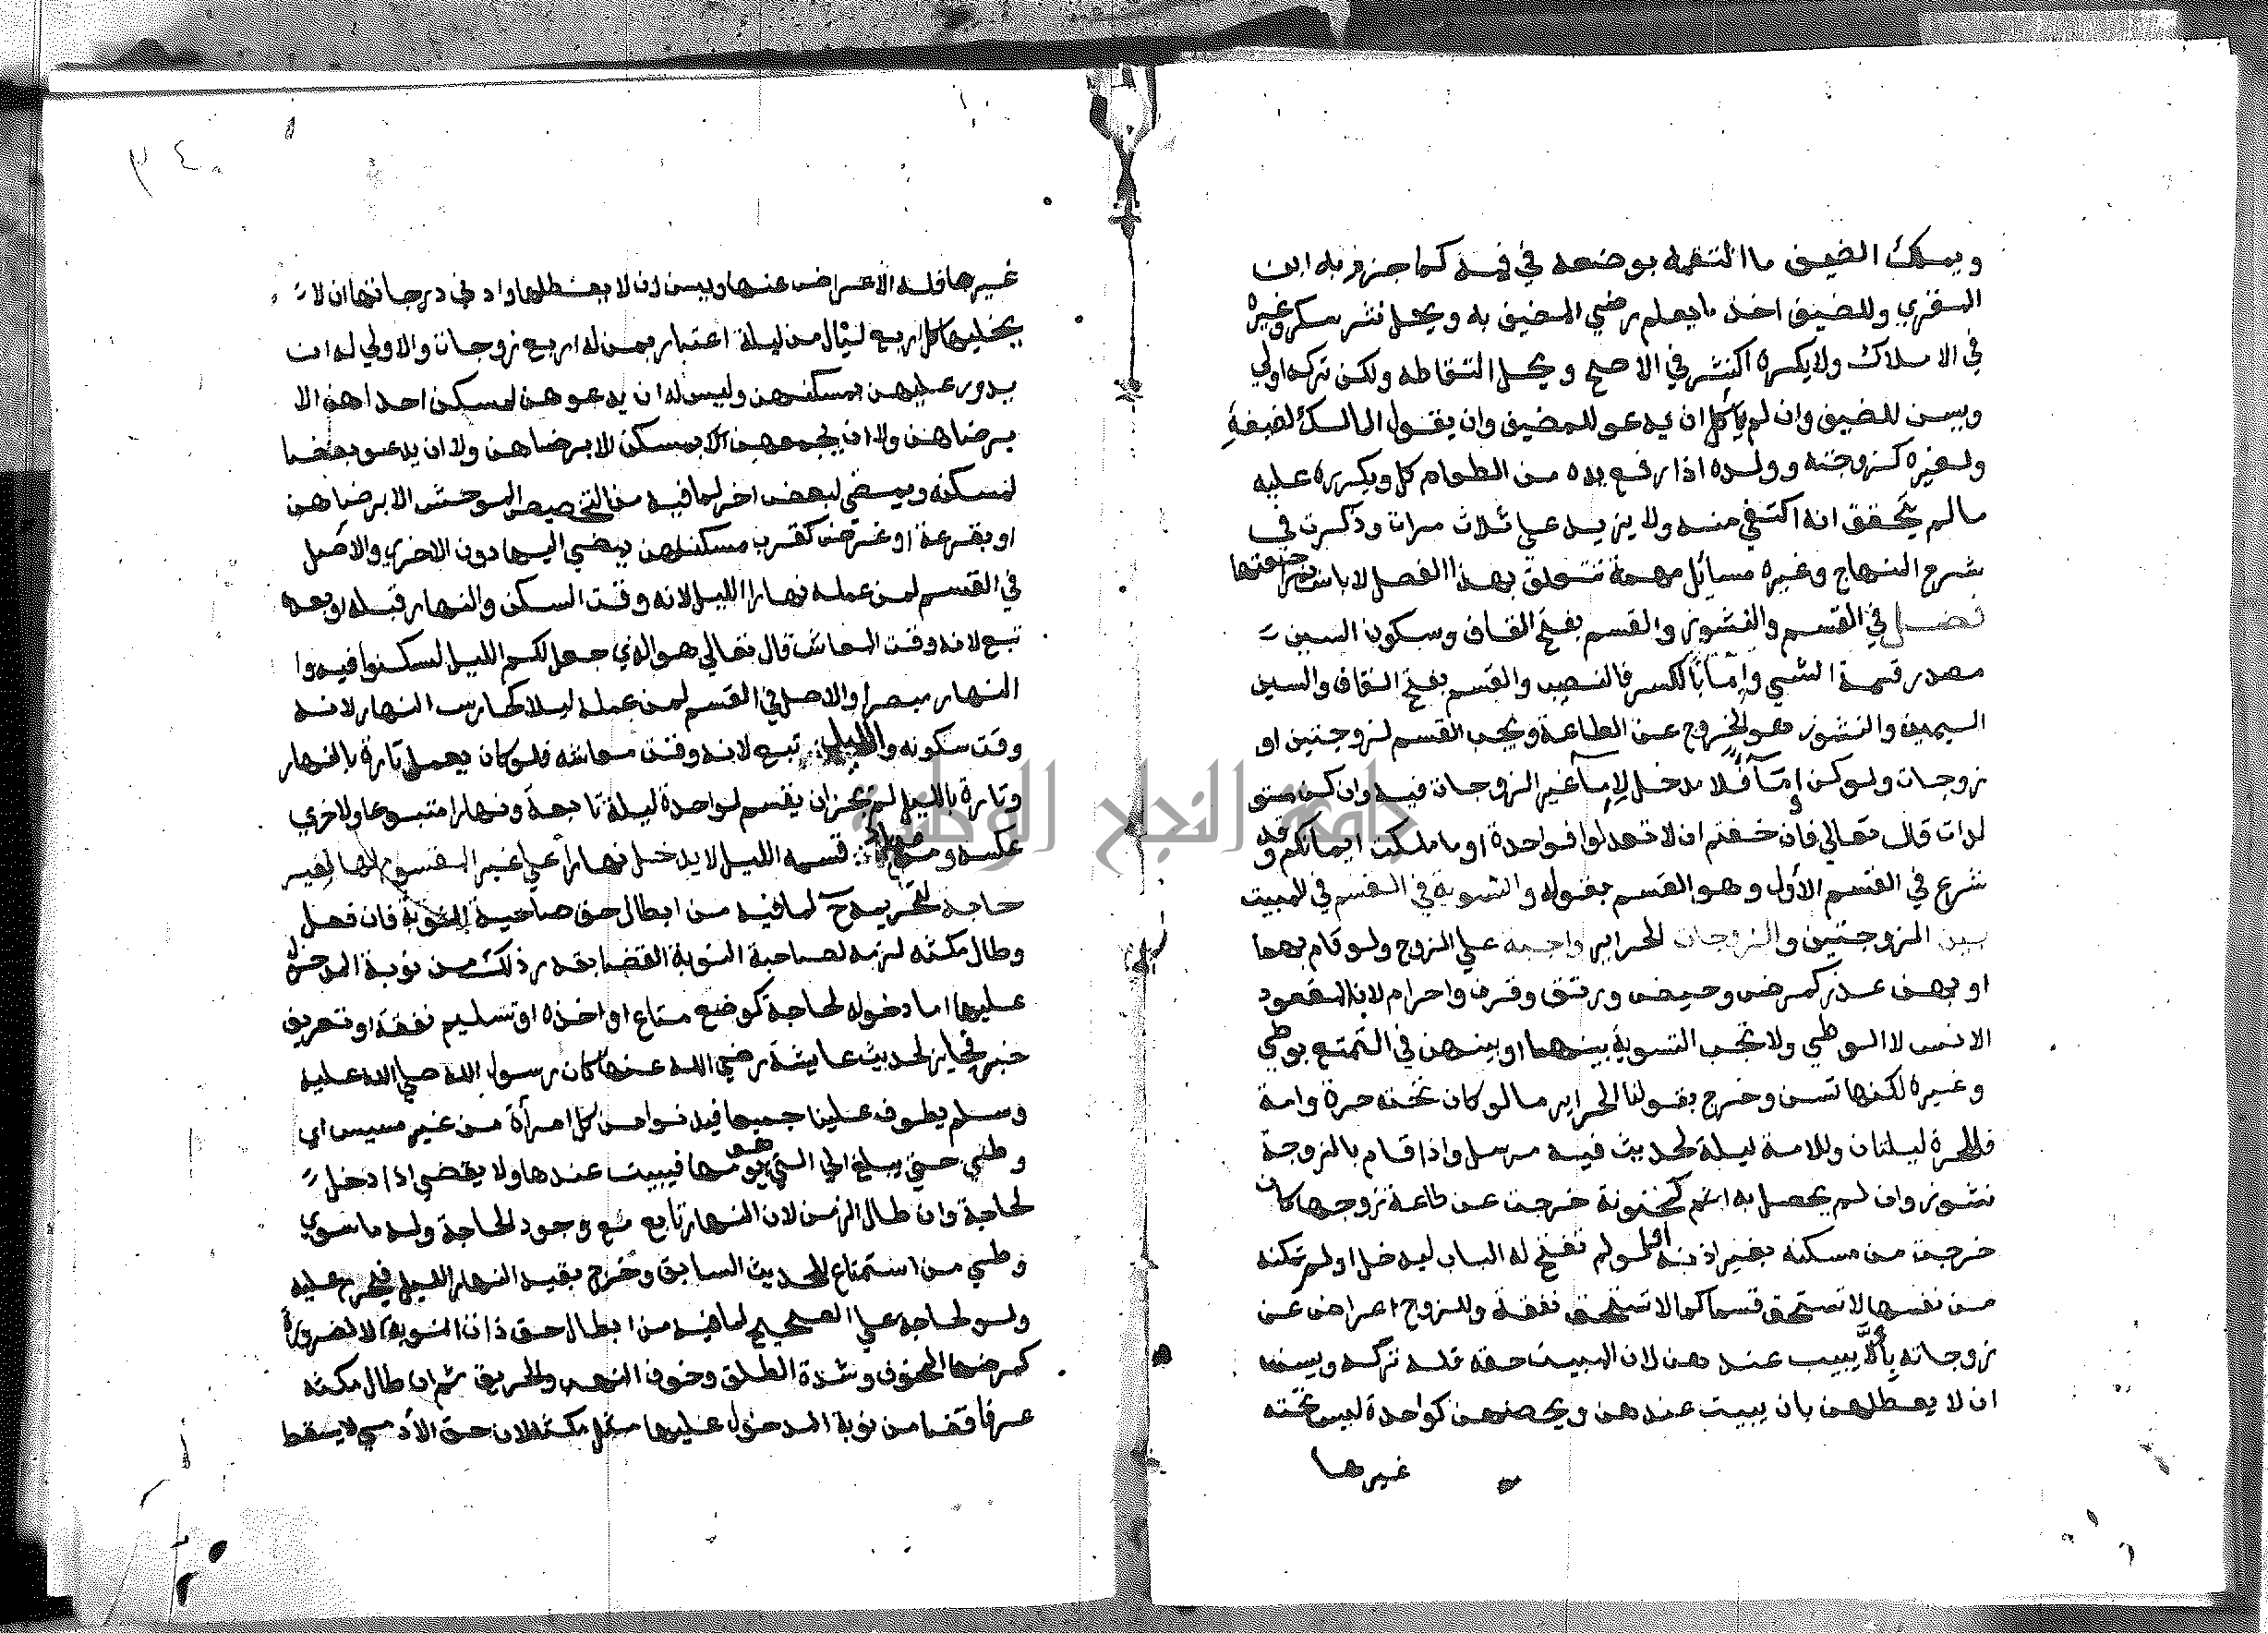 ويملك الضيف ما التقمه بوضعه في فيه كما جزم به ابن
المقري وللضيف اخذ ما يعلم رضي المضيف به ويحل نثر سكر وغيره
في الاملاك ولا يكره النثر في الاصح ويحل التقاطه ولكن تركه اولي
ويسن للضيف وان لم ياكل ان يدعو للمضيف وان يقول المالك لضيفه
ولغيره كزوجته وولده اذا رفع يده من الطعام كل ويكرره عليه
مالم يتحقق انه اكتفي منه ولا يزيد علي ثلاث مرات وذكرت في
شرح المنهاج وغيره مسائل مهمة تتعلق بهذا الفصل لا باس بمراجعتها
فصل في القسم والنشوز والقسم بفتح القاف وسكون السين
مصدر قسمة الشي واما بالكسر فالنصيب والقسم بفتح القاف والسين
اليمين والنشوز هو الخروج عن الطاعة ويجب القسم لزوجتين او
زوجات ولو كن إمآ فلا مدخل لإمآ غير الزوجات فيه وان كن مستو
لدات قال تعالي فان خفتم ان لا تعدلوا فواحدة او ما ملكت ايمانكم وقد
شرع في القسم الأول وهو القسم بقوله والتسوية في القسم في المبيت
بين الزوجتين والزوجات الحراير واجبة علي الزوج ولو قام بهما
او بهن عذر كمرض وحيض ورتق وقرن واحرام لان المقصود
الانس لا الوطي ولا تجب التسوية بينهما او بينهن في التمتع بوطي
وغيره لكنها تسن وخرج بقولنا الحراير ما لو كان تحته حرة وامة
فللحرة ليلتان وللامة ليلة لحديث فيه مرسل واذا قام بالزوجة
نشوز وان لم يحصل به اثم كمجنونة خرجت عن طاعة زوجها كان
خرجت من مسكنه بغير اذنه او لم تفتح له الباب ليدخل او لم تمكنه
من نفسها لا تستحق قسما كما لا تستحق نفقة وللزوج اعراض عن
زوجاته بألّا يبيت عندهن لان المبيت حقه فله تركه ويسن
ان لا يعطلهن بان يبيت عندهن ويحصنهن كواحدة ليس تحته
غيرها
٣٤
غيرها فله الاعراض عنها ويسن ان لا يعطلها وادني درجاتها ان لا
يخليها كل اربع ليال من ليلة اعتبار بمن له اربع زوجات والاولي له ان
يدور عليهن بمسكنهن وليس له ان يدعوهن لمسكن احداهن الا
برضاهن ولا ان يجمعهن بمسكن الا برضاهن ولا ان يدعو بعضا
لمسكنه ويمضي لبعض اخر لما فيه من التخصيص الموحش الا برضاهن
او بقرعة او غرض كقرب مسكنهن يمضي اليها دون الاخري والاصل
في القسم لمن عمله نهارا الليل لانه وقت السكن والنهار قبله او بعده
تبع لانه وقت المعاش قال تعالي هو الذي جعل لكم الليل لسكنوا فيه وا
النهار مبصرا والاصل في القسم لمن عمله ليلا كحارس النهار لانه
وقت سكونه والليل تبع لانه وقت معاشه فلو كان يعمل تارة بالنهار
وتارة بالليل لم يجز ان يقسم لواحدة ليلة تابعة ونهارا متبوعا ولاخري
عكسه و قسمه الليل لا يدخل نهارا علي غير المقسوم لها لغير
حاجة لتحريمه ح لما فيه من ابطال حق صاحبة النوبة فان فعل
وطال مكثه لزمه لصاحبة النوبة القضا بقدر ذلك من نوبة المدخول
عليها اما دخوله لحاجة كوضع متاع او اخذه او تسليم نفقة او تعريف
خبر فجايز لحديث عايشة رضي الله عنها كان رسول الله صلي الله عليه
وسلم يطوف علينا جميعا فيدنوا من كل امرأة من غير مسيس اي
وطئي حتي يبلغ الي التي هو يومها فيبيت عندها ولا يقضي اذا دخل
لحاجة وان طال الزمن لان النهار تابع مع وجود الحاجة وله ما سوي
وطئي من استمتاع للحديث السابق وخرج بقيد النهار الليل فيحرم عليه
ولو لحاجة علي الصحيح لما فيه من ابطال حق ذات النوبة الا لضرورة
كمرضها المخوف وشدة الطلق وخوف النهب والحريق ثم ان طال مكثه
عرفا قضا من نوبة المدخول عليها مثل مكثه لان حق الأدمي لا يسقط
جامعة النجاح الوطنية